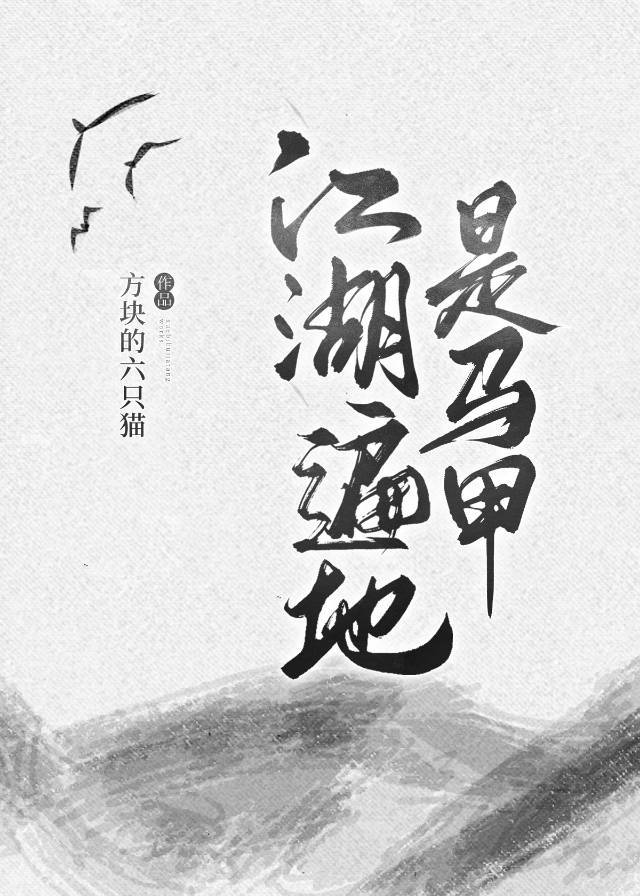 江湖遍地
是马甲
方块的六只猫
作品
works